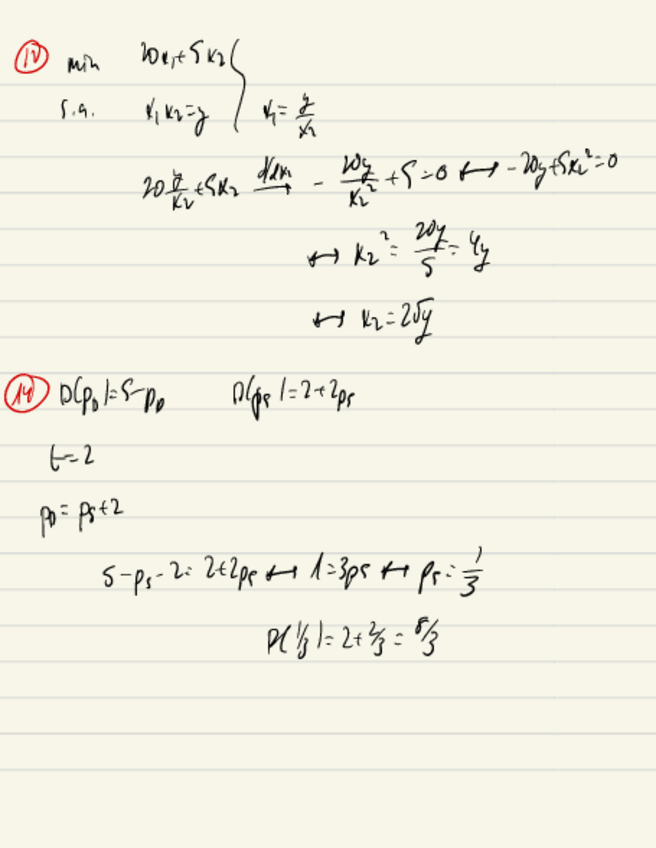 10 min 20x₁+5x₂
s.a. x₁x₂=y } x₁= y/x₂
20 y/x₂ +5x₂ d/dx₂ → - 20y/x₂² +5=0 ↔ -20y+5x₂²=0
↔ x₂² = 20y/5 = 4y
↔ x₂=2√y
14 D(p_D)=5-p_D D(p_s)=2+2p_s
t=2
p_D = p_s+2
5-p_s-2 = 2+2p_s ↔ 1=3p_s ↔ p_s = 1/3
D(1/3)=2+2/3 = 8/3